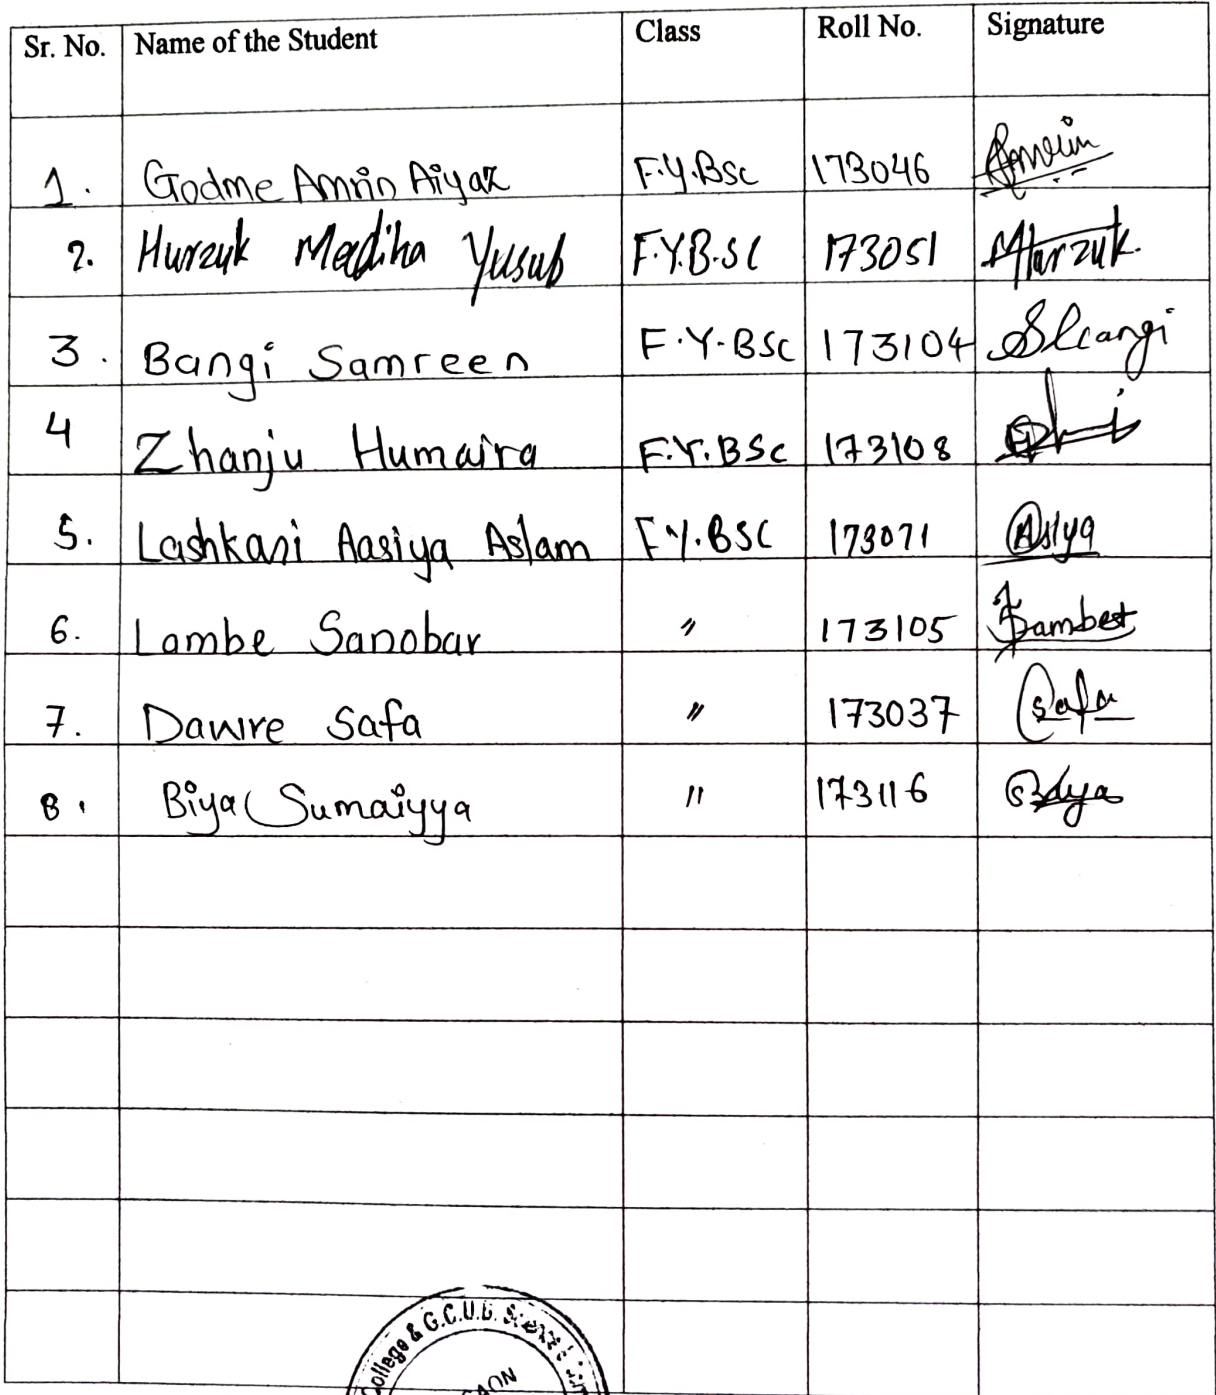 Sr. No. Name of the Student Class Roll No. Signature
1. Godme Amrin Aiyaz F.Y.BSc 173046 Amrin
2. Hurzuk Madiha Yusub F.Y.B.SC 173051 Hurzuk.
3. Bangi Samreen F.Y.BSc 173104
4 Zhanju Humaira F.Y.BSc 173108
5. Lashkari Aasiya Aslam F.Y.BSC 173071 Asiya
6. Lambe Sanobar " 173105
7. Dawre Safa " 173037 Safa
8. Biya Sumaiyya " 173116
College & G.C.U.B. Science